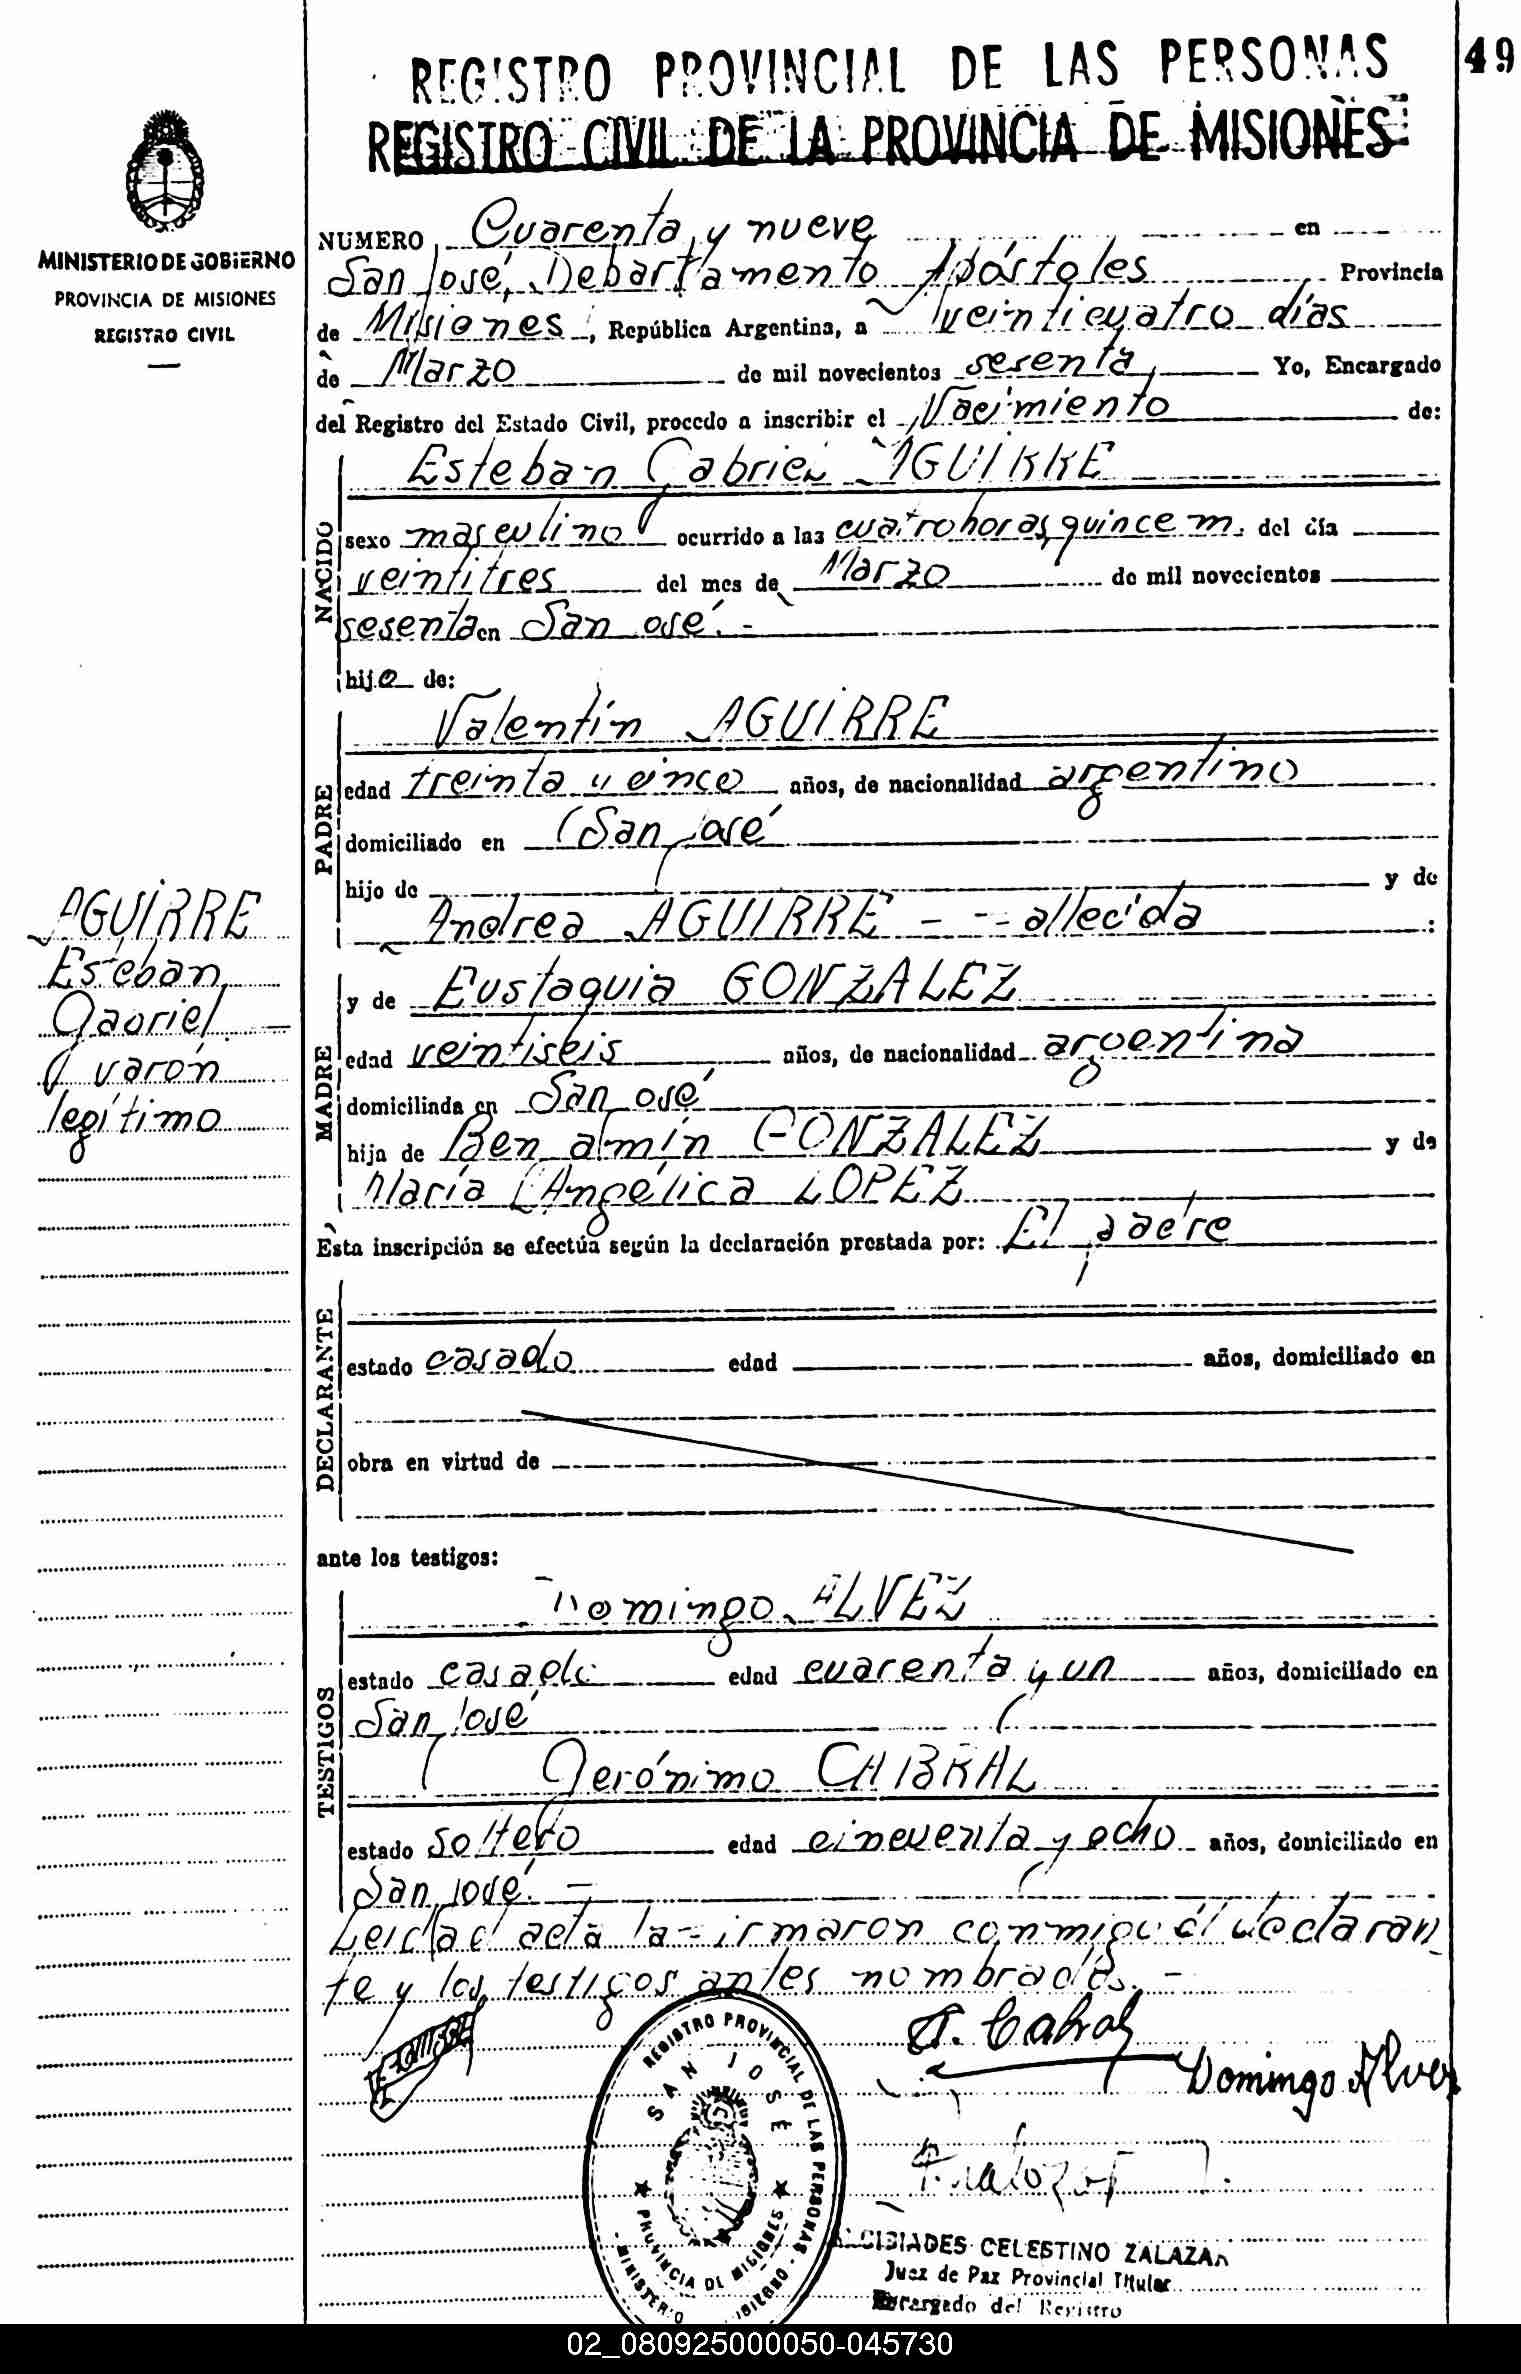 REGISTRO PROVINCIAL DE LAS PERSONAS
49
REGISTRO CIVIL DE LA PROVINCIA DE MISIONES
MINISTERIO DE GOBIERNO
PROVINCIA DE MISIONES
REGISTRO CIVIL
NUMERO Cuarenta y nueve en
San José, Departamento Apóstoles Provincia
de Misiones, República Argentina, a veinticuatro días
de Marzo de mil novecientos sesenta, Yo, Encargado
del Registro del Estado Civil, procedo a inscribir el Nacimiento de:
NACIDO
Esteban Gabriel AGUIRRE
sexo masculino ocurrido a las cuatro horas, quince m. del día
veintitres del mes de Marzo de mil novecientos
sesenta en San José. -
hijo de:
PADRE
Valentín AGUIRRE
edad treinta y cinco años, de nacionalidad argentino
domiciliado en San José
hijo de y de
Andrea AGUIRRE - - - fallecida :
AGUIRRE
Esteban
Gabriel
varón
legítimo
MADRE
y de Eustaquia GONZALEZ
edad veintiseis años, de nacionalidad argentina
domiciliada en San José
hija de Benjamín GONZALEZ y de
María Angélica LOPEZ
Esta inscripción se efectúa según la declaración prestada por: El padre
DECLARANTE
estado casado edad años, domiciliado en
obra en virtud de
ante los testigos:
TESTIGOS
Domingo ALVEZ
estado casado edad cuarenta y un años, domiciliado en
San José
Gerónimo CABRAL
estado soltero edad cincuenta y ocho años, domiciliado en
San José. -
Leida el acta la firmaron conmigo él declaran
te y los testigos antes nombrados. -
G. Cabral
Domingo Alvez
REGISTRO PROVINCIAL DE LAS PERSONAS
SAN JOSE
PROVINCIA DE MISIONES
MINISTERIO GOBIERNO
ALCIBIADES CELESTINO ZALAZAR
Juez de Paz Provincial Titular
Encargado del Registro
02_080925000050-045730